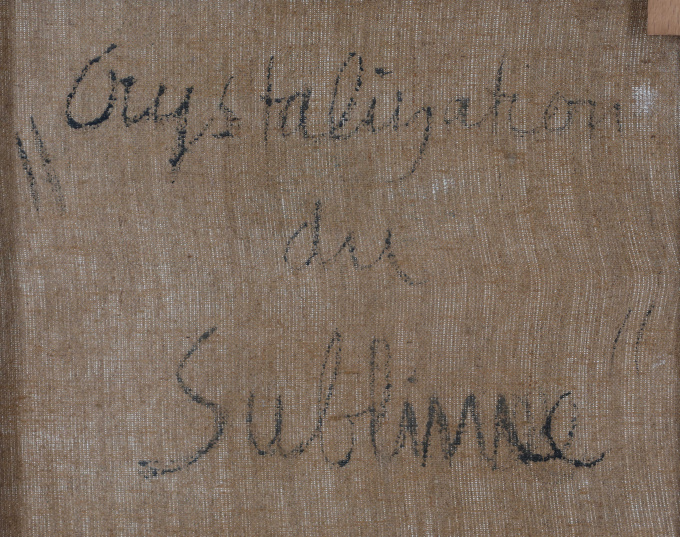 "Crystalization
du
Sublime"